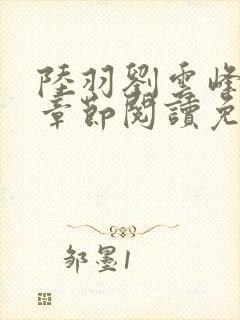 陸羽劉雲峰
章節閱讀免
邹墨1